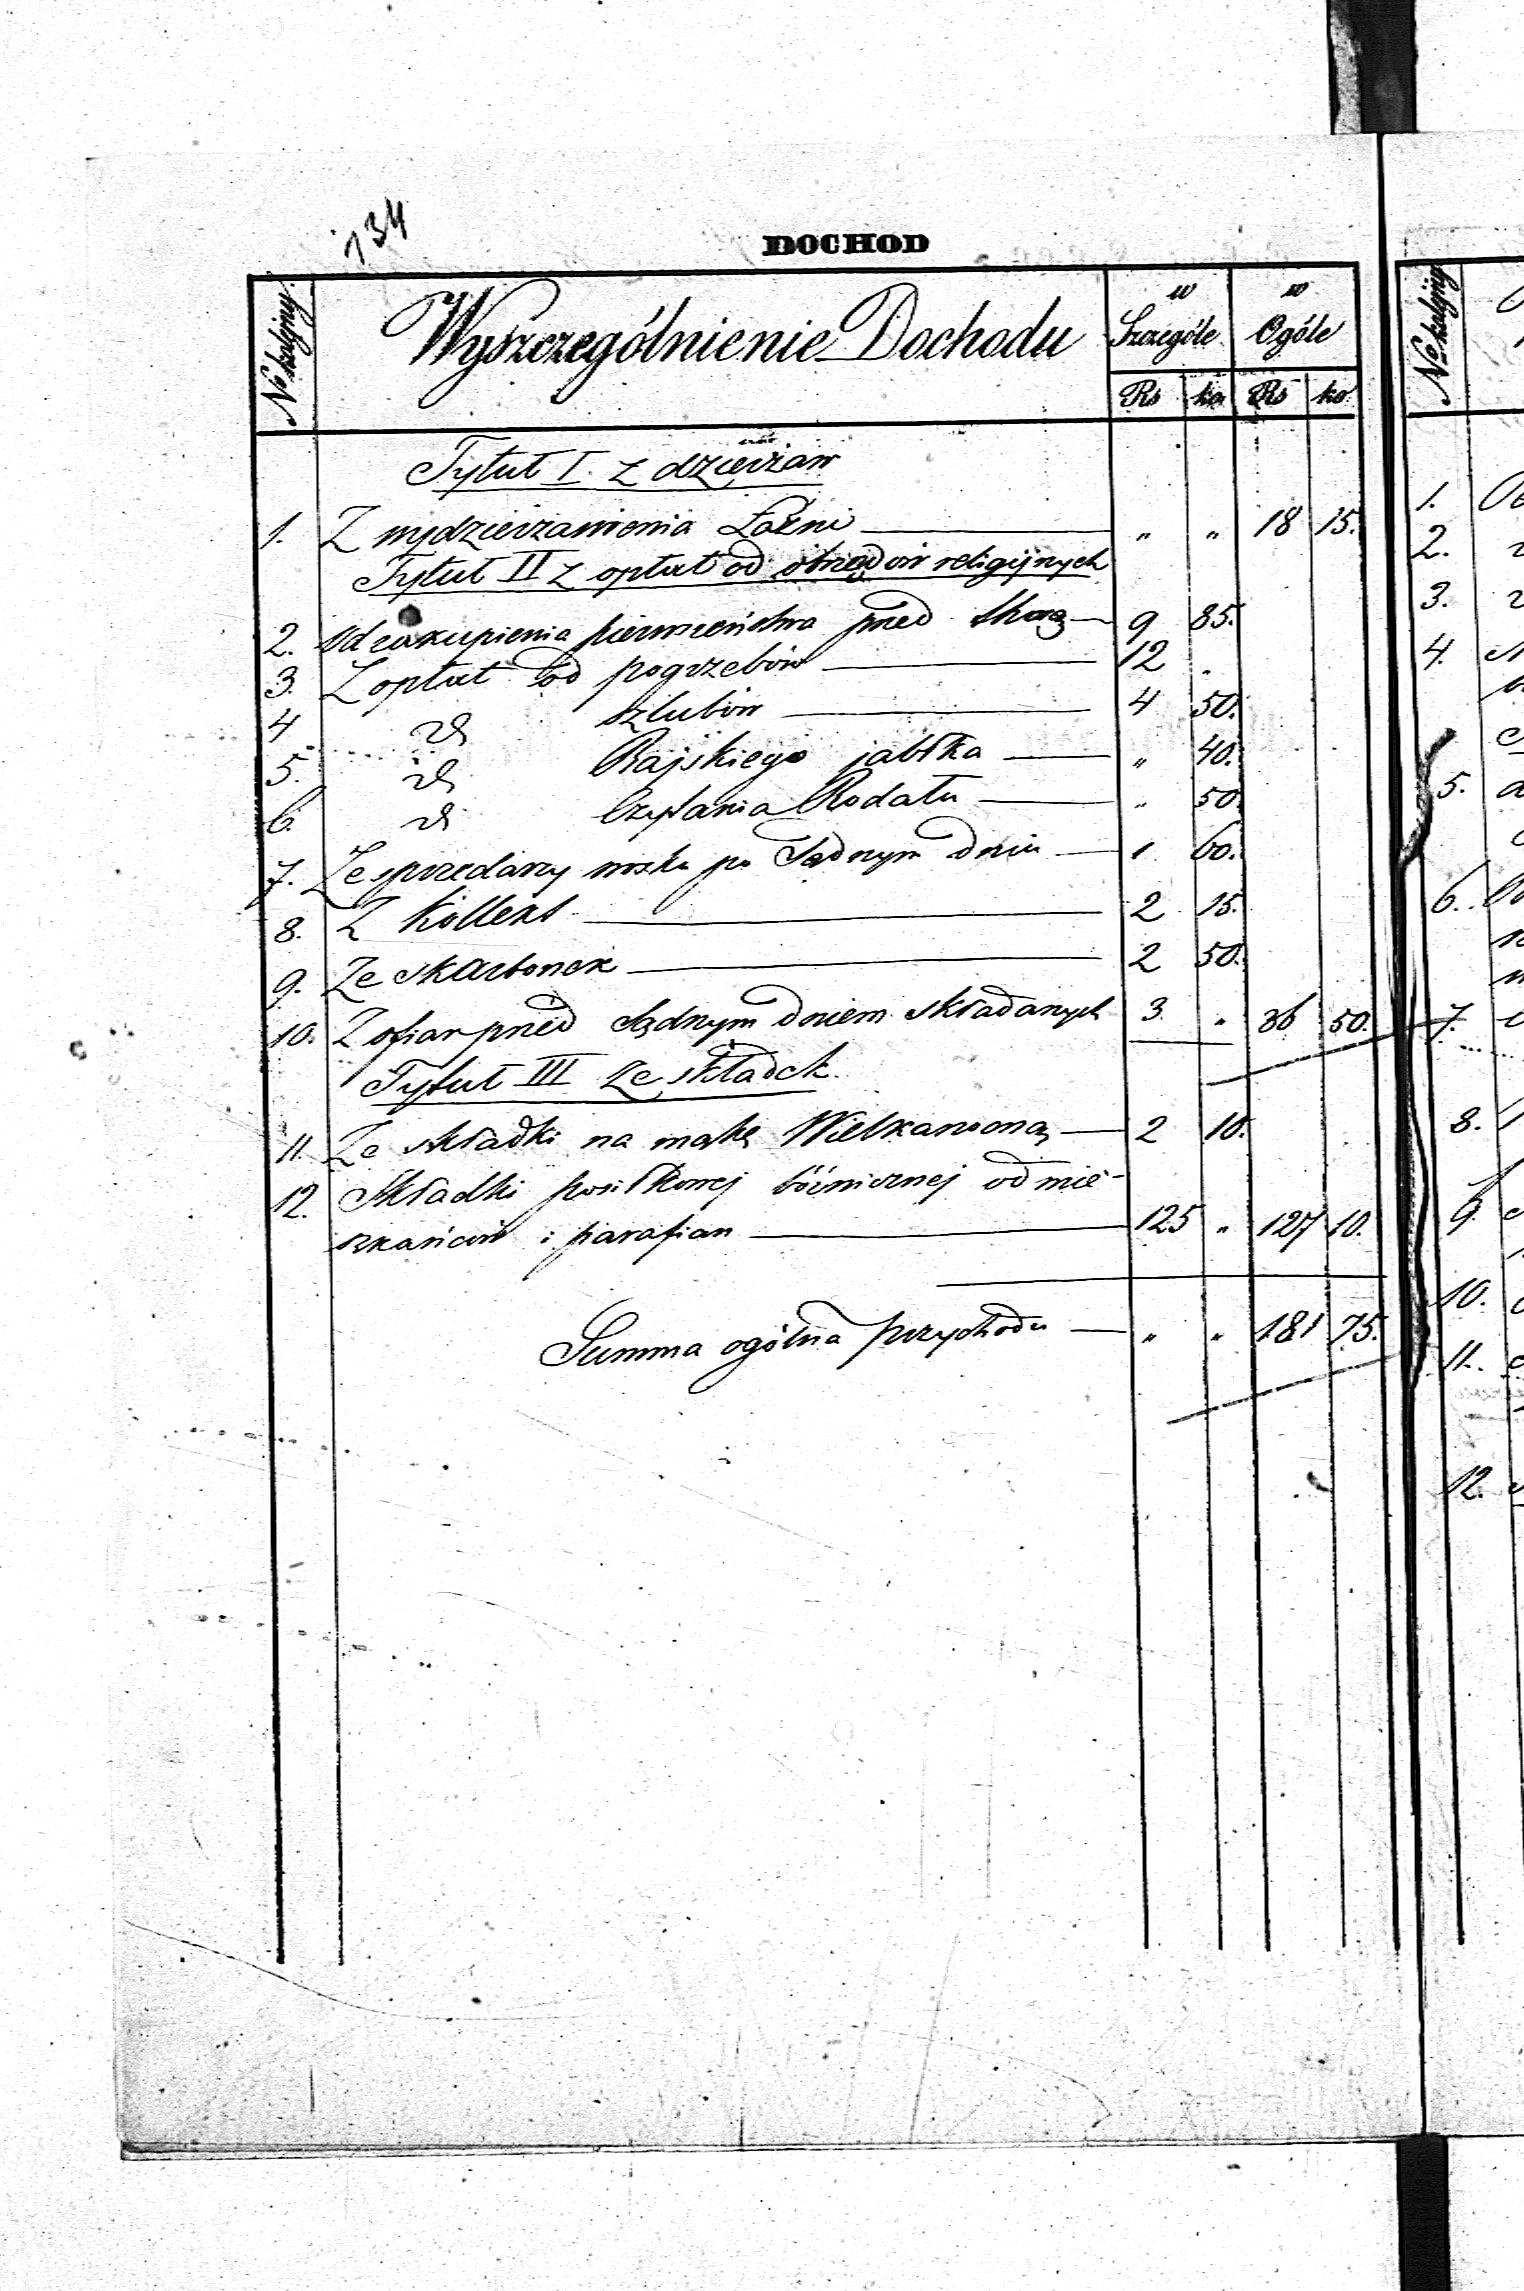 134
DOCHOD
No kolejny
Wyszczególnienie Dochodu
w Szczególe
w Ogóle
Rs ko Rs ko
Tytuł I. z dzierżaw
1. Z wydzierżawienia Łaźni " " 18 15.
Tytuł II z opłat od obrzędów religijnych
2. Od zakupienia pierwszeństwa przed 9 85.
3. Z opłat od pogrzebów 12 "
4 szlubów 4 50.
5. Rajskiego jabłka " 40.
6. Czytania Rodału " 50
7. Ze sprzedaży wosku po Sądnym Dniu 1 60.
8. Z Kollekt 2 15.
9. Ze skarbonek 2 50.
10. Z ofiar przed Sądnym Dniem składanych 3 " 36 50.
Tytuł III Ze składek.
11. Ze składki na mąkę Wielkanocną 2 10.
12. Składki posiłkowej bóźnicznej od mie-
szkańców i parafian 125 " 127 10.
Summa ogólna przychodu " " 181 75.
No kolejny
1.
2.
3.
4.
5.
6.
7.
8.
9.
10.
11.
12.